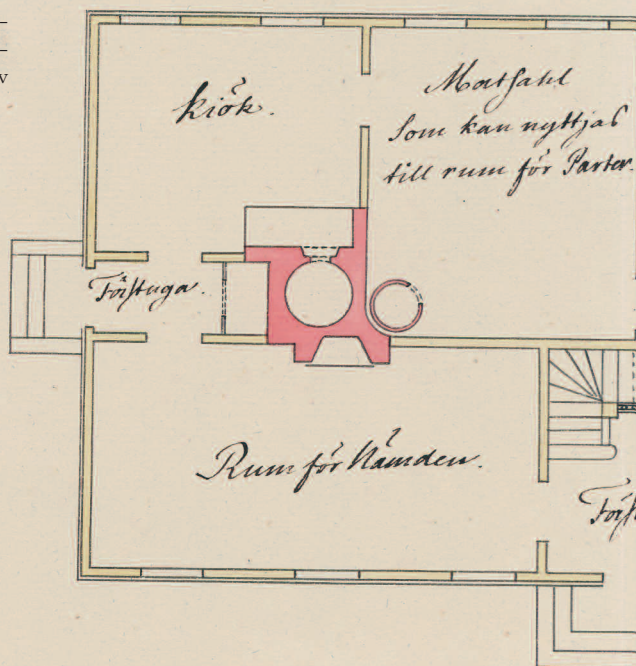 v
Kiök.
Matsahl
Som kan nyttjas
till rum för Parter.
Förstuga.
Rum för Nämden.
Förs